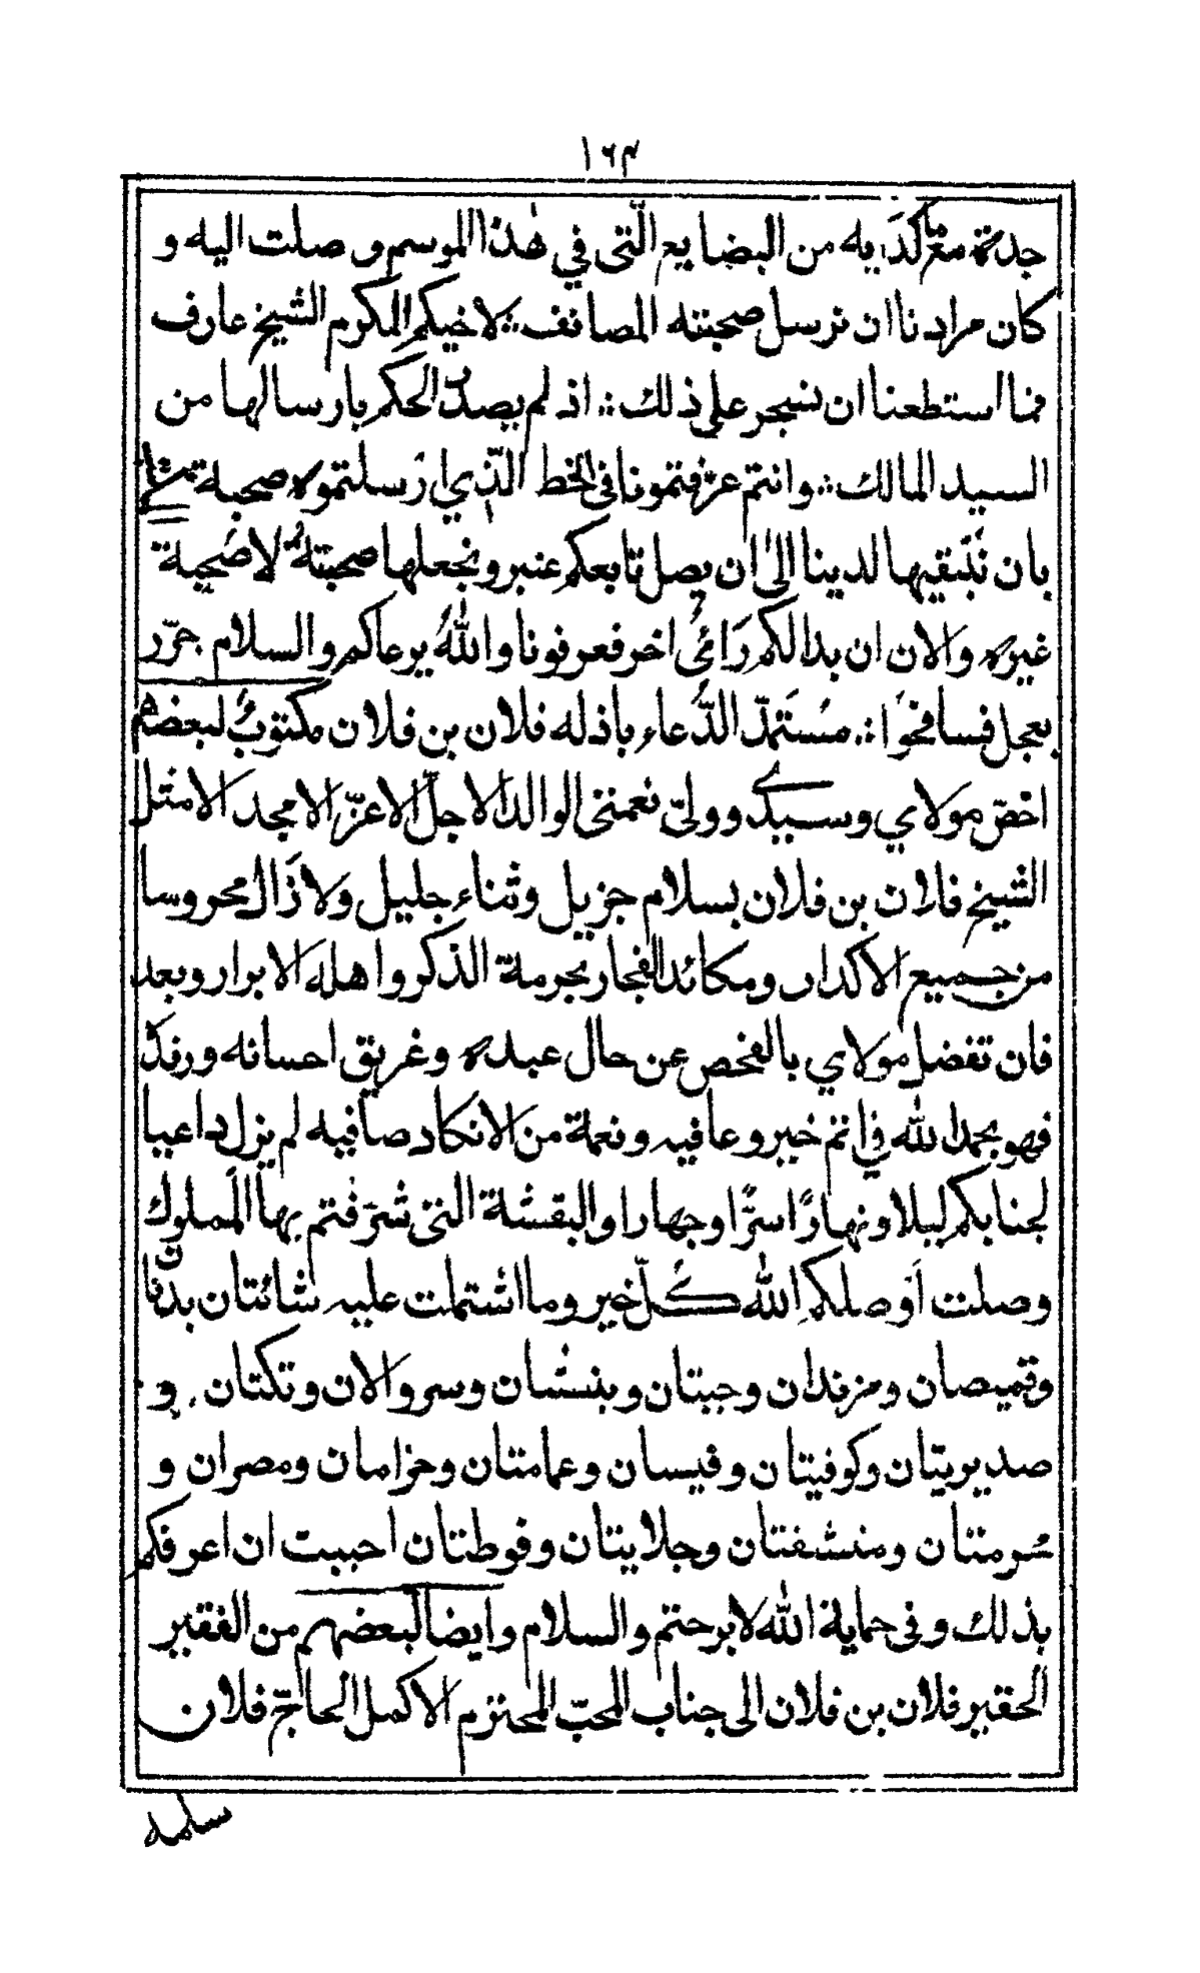 ١٦٣
جدة مع كدَيه من البضايع الّتى في هٰذا الموسم وصلت اليه و
كان مرادنا ان نرسل صحبته المصانف ؞ لاخيكم المكرم الشيخ عارف
فما استطعنا ان نتجر على ذلك ؞ اذ لم يصدر الحكم بارسالها من
السيد المالك ؞ وانتم عرّفتمونا فى الخط الّذي ارسلتموه صحبة
بان نَبْقيها لدينا الىٰ ان يصل تابعكم عنبر ونجعلها صحبتهُ لا صُحبة
غيره والان ان بدا لكم رَائىٌ اخر فعرفونا واللهُ يرعاكم والسلام حرّر
بعجل فسامحوا ؞ مسْتَمدّ الدُّعاء باذله فلان بن فلان مكتوبٌ لبعضهم
اخصّ مولاي وسيدى وولىّ نعمتى الوالد الاجلّ الاعزّ الامجد الامثل
الشيخ فلان بن فلان بسلام جزيل وثناء جليل ولا زَال محروسا
من جميع الاكدار ومكائد الفجار بحرمة الذكر واهله الابرار وبعد
فان تفضل مولاي بالفحص عن حال عبده وغريق احسانه ورفده
فهو بحمد الله في اتم خير وعافيه ونعمة من الانكاد صافيه لم يزل داعيا
لجنابكم ليلا ونهارًا سرًّا وجهارا والبقشة التى شرّفتم بها المملوك
وصلت اَوصلكم الله كُلّ خير وما اشتملت عليه شائتان بدنان
وقميصان ومزندان وجبتان وبنشان وسروالان وتكتان و
صديريتان وكوفيتان وفيسان وعمامتان وحزامان ومصران و
سرمتان ومنشفتان وجلابتان وفوطتان احببت ان اعرفكم
بذلك وفى حماية الله لا برحتم والسلام وايضا لبعضهم من الفقير
الحقير فلان بن فلان الى جناب المحبّ المحترم الاكمل الحاجّ فلان
سلمه